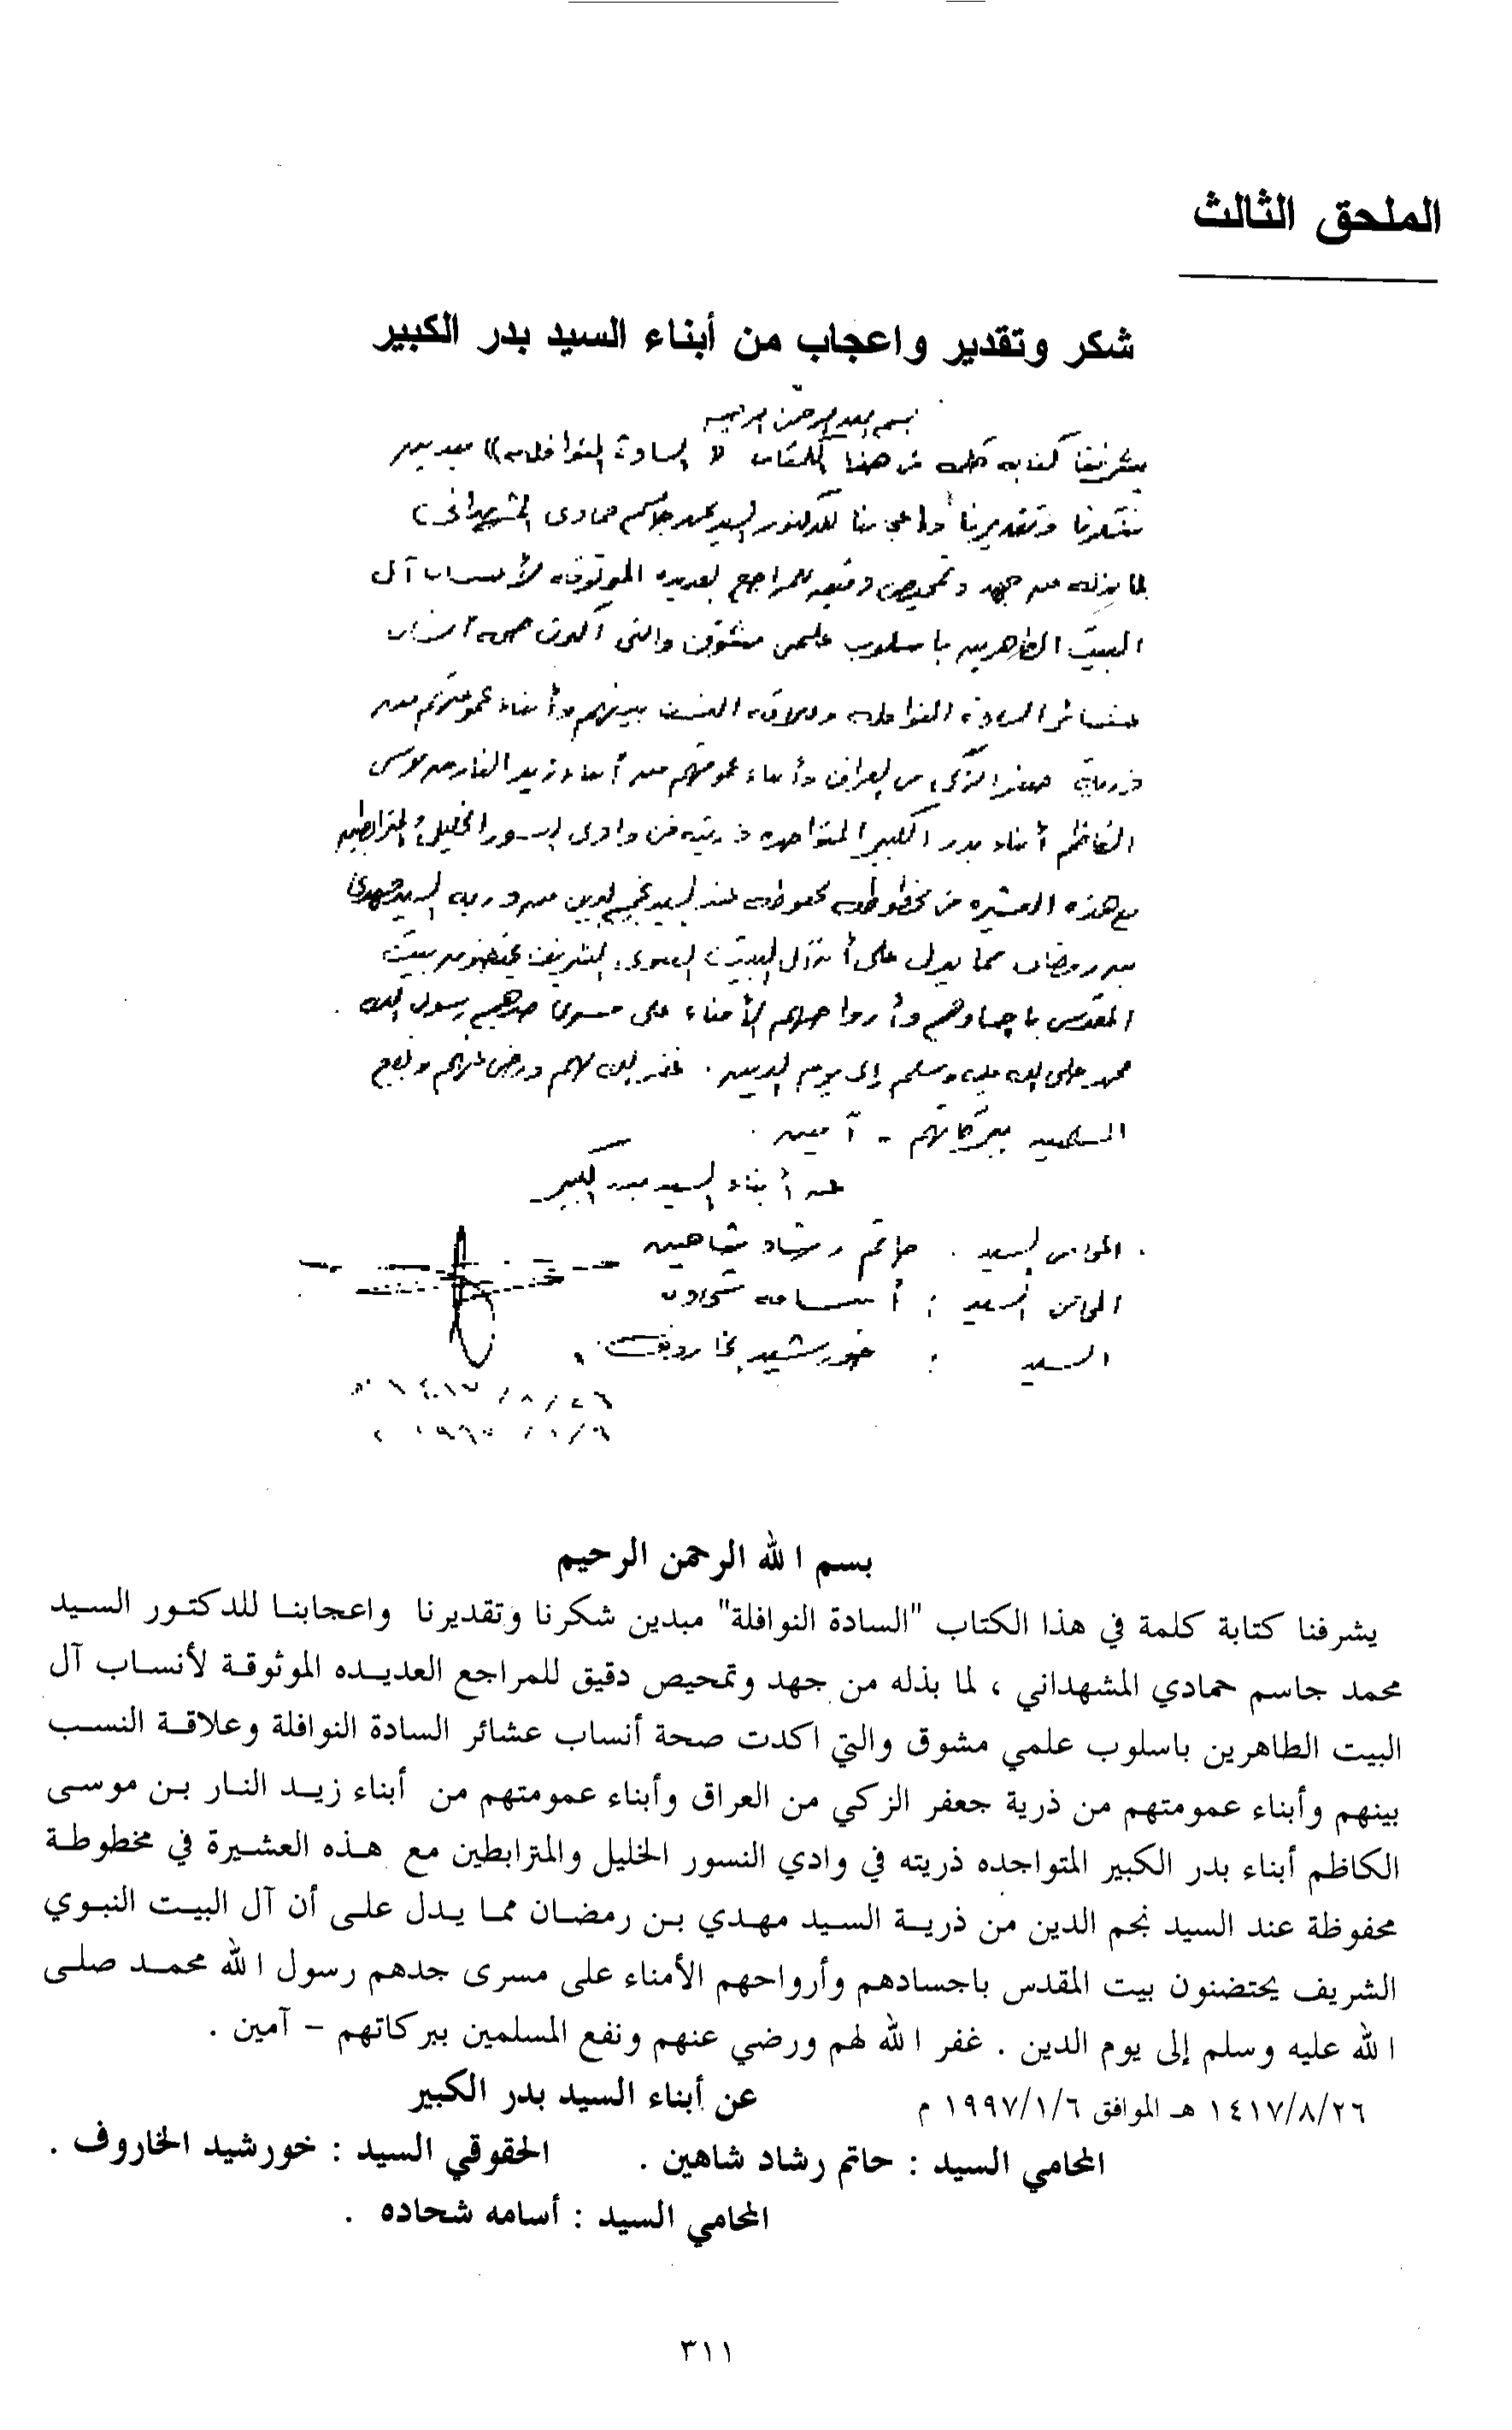 الملحق الثالث
شكر وتقدير واعجاب من أبناء السيد بدر الكبير
بسم الله الرحمن الرحيم
يشرفنا كتابة كلمة في هذا الكتاب لا السادة النوافلة)) مبدين
شكرنا وتقديرنا وأعجابنا للدكتور السيد محمد جاسم حمادي المشهداني
لما بذله من جهد وتمحيص دقيق للمراجع العديده الموثوقه لأنساب آل
البيت الطاهرين باسلوب علمي مشوق والتي اكدت صحة أنساب
عشائر السادة النوافله وعلاقه النسب بينهم وأبناء عمومتهم من
ذرية جعفر الزكي من العراق وأبناء عمومتهم من أبناء زيد النار بن موسى
الكاظم أبناء بدر الكبير المتواجده ذريته في وادي النسور الخليل والمترابطين
مع هذه العشيره في مخطوطه محفوظه عند السيد نجم الدين من ذرية السيد مهدي
بن رمضان مما يدل على أن آل البيت النبوي الشريف يحتضنون بيت
المقدس باجسادهم وأرواحهم الأمناء على مسرى جدهم رسول الله .
محمد صلى الله عليه وسلم إلى يوم الدين . غفر الله لهم ورضي عنهم ونفع
المسلمين ببركاتهم - آمين .
عن أبناء السيد بدر الكبير
. المحامي السيد . حاتم رشاد شاهين
المحامي السيد : أسامه شحاده
السيد : خورشيد خاروف .
بسم الله الرحمن الرحيم
يشرفنا كتابة كلمة في هذا الكتاب "السادة النوافلة" مبدين شكرنا وتقديرنا واعجابنا للدكتور السيد
محمد جاسم حمادي المشهداني ، لما بذله من جهد وتمحيص دقيق للمراجع العديده الموثوقة لأنساب آل
البيت الطاهرين باسلوب علمي مشوق والتي اكدت صحة أنساب عشائر السادة النوافلة وعلاقة النسب
بينهم وأبناء عمومتهم من ذرية جعفر الزكي من العراق وأبناء عمومتهم من أبناء زيد النار بن موسى
الكاظم أبناء بدر الكبير المتواجده ذريته في وادي النسور الخليل والمترابطين مع هذه العشيرة في مخطوطة
محفوظة عند السيد نجم الدين من ذرية السيد مهدي بن رمضان مما يدل على أن آل البيت النبوي
الشريف يحتضنون بيت المقدس باجسادهم وأرواحهم الأمناء على مسرى جدهم رسول الله محمد صلى
الله عليه وسلم إلى يوم الدين . غفر الله لهم ورضي عنهم ونفع المسلمين ببركاتهم – آمين .
عن أبناء السيد بدر الكبير
١٤١٧/٨/٢٦ هـ الموافق ١٩٩٧/١/٦ م
المحامي السيد : حاتم رشاد شاهين . الحقوقي السيد : خورشيد الخاروف .
المحامي السيد : أسامه شحاده .
٣١١